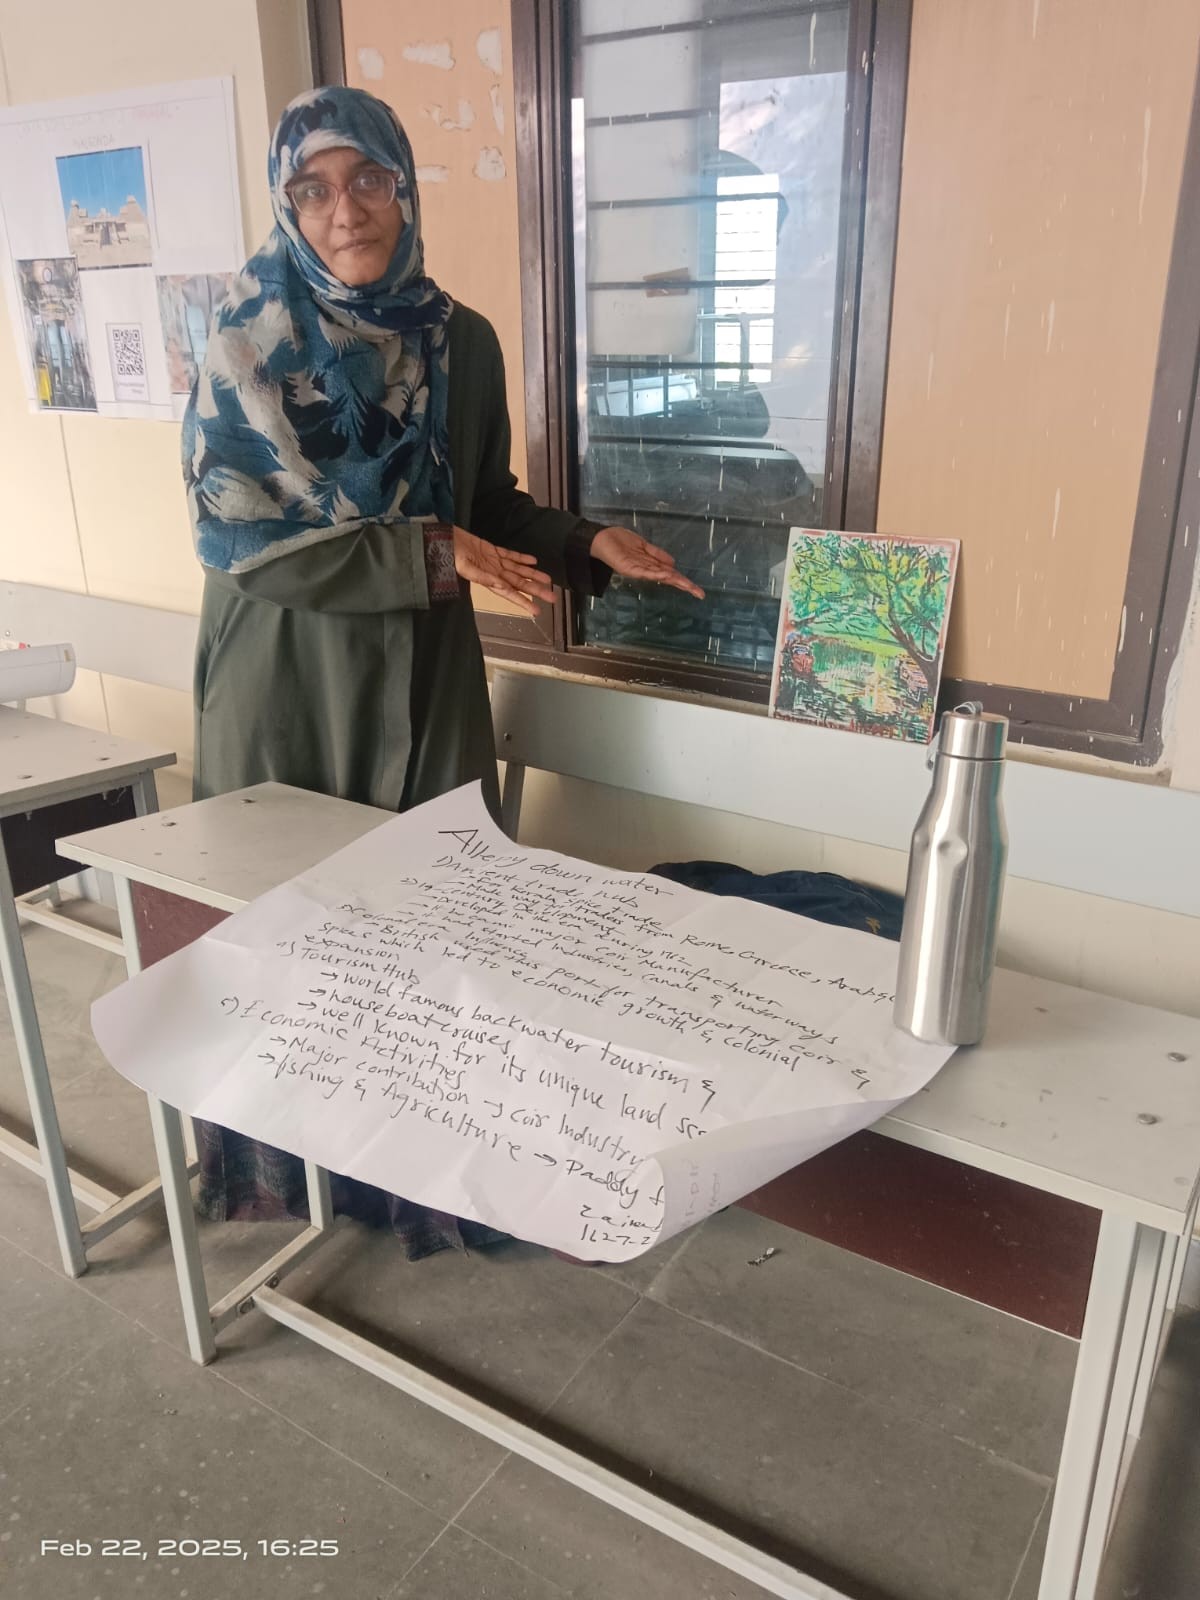 NALGONDA
Alleppy down water
1) Ancient Trade hub
→ For Kerala spice trade
→ Made way for traders from Rome, Greece, Arabs
2) 19-Century Development
→ Developed in the era during 1762
→ It became major coir Manufacturer
→ it had started Industries, canals & waterways
3) Colonial era Influence
→ British used this port for transporting Coir &
spices which led to economic growth & colonial
expansion
4) Tourism Hub
→ world famous backwater tourism &
→ houseboat cruises
→ well known for its unique land sc
5) Economic Activities
→ Major contribution → Coir Industry
→ fishing & Agriculture → Paddy f
1627-2
Feb 22, 2025, 16:25